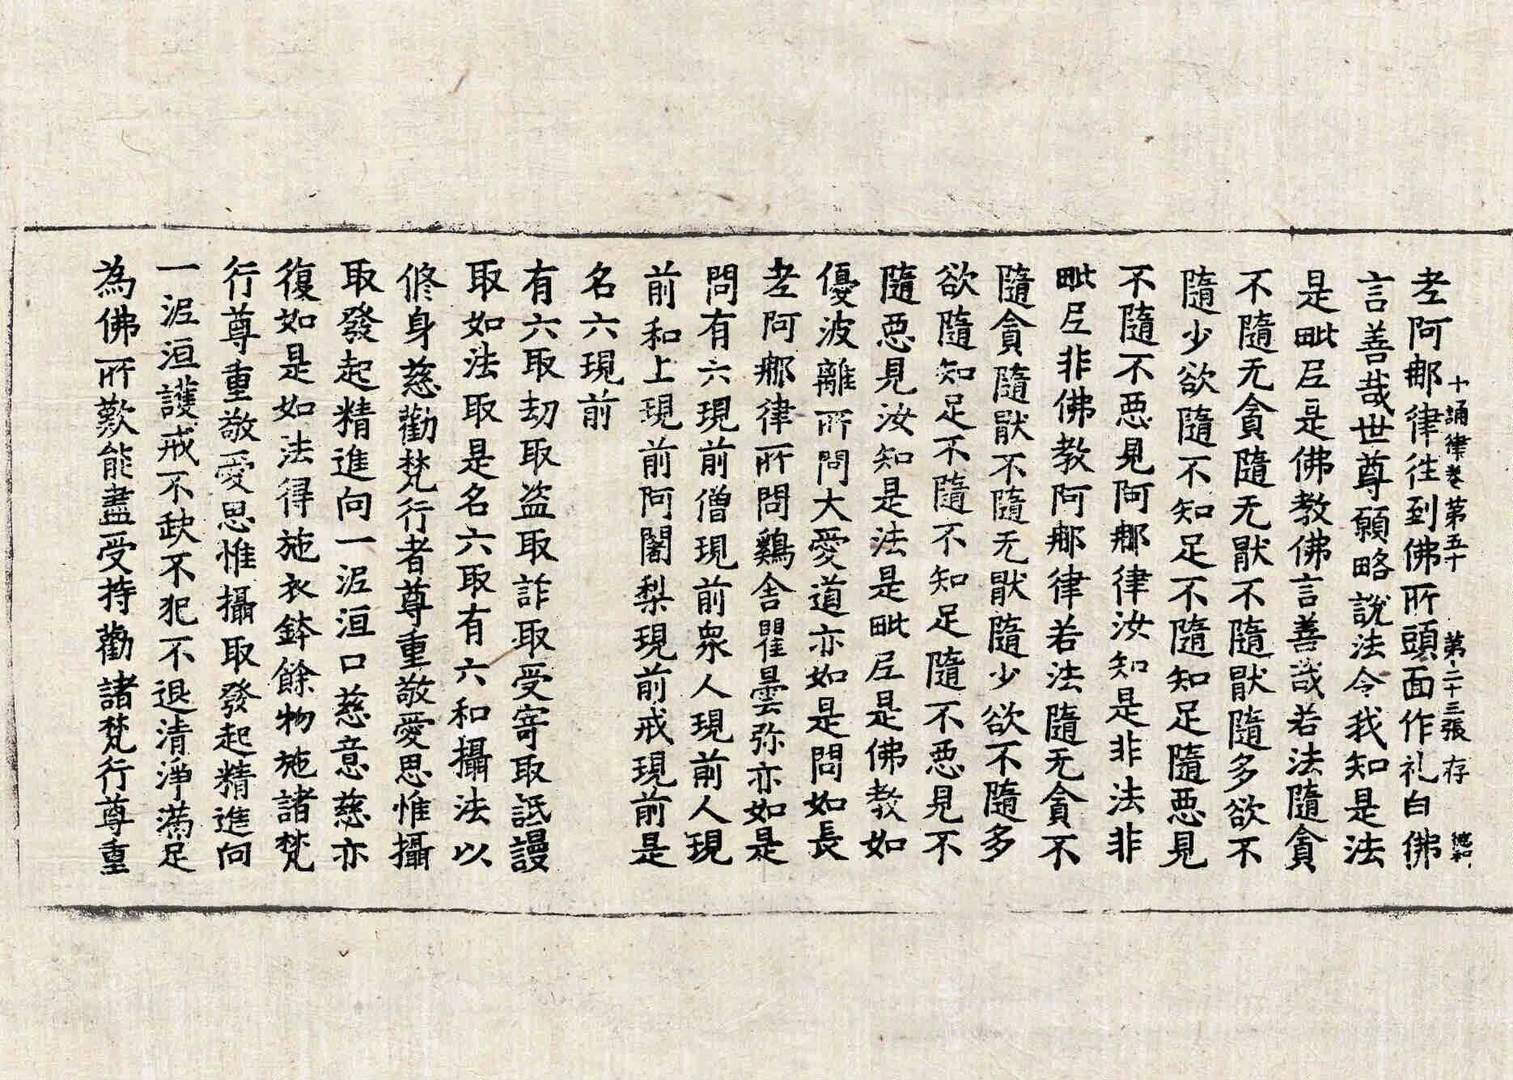 十誦律卷第五十 第二十三張 存 德和
老阿那律往到佛所頭面作礼白佛
言善哉世尊願略說法令我知是法
是毗尼是佛教佛言善哉若法隨貪
不隨无貪隨无猒不隨猒隨多欲不
隨少欲隨不知足不隨知足隨惡見
不隨不惡見阿那律汝知是非法非
毗尼非佛教阿那律若法隨无貪不
隨貪隨猒不隨无猒隨少欲不隨多
欲隨知足不隨不知足隨不惡見不
隨惡見汝知是法是毗尼是佛教如
優波離所問大愛道亦如是問如長
老阿那律所問鷄舍瞿曇弥亦如是
問有六現前僧現前衆人現前人現
前和上現前阿闍梨現前戒現前是
名六現前
有六取刧取盗取詐取受寄取詆謾
取如法取是名六取有六和攝法以
脩身慈勸梵行者尊重敬愛思惟攝
取發起精進向一泥洹口慈意慈亦
復如是如法得施衣鉢餘物施諸梵
行尊重敬愛思惟攝取發起精進向
一泥洹護戒不缺不犯不退清淨滿足
為佛所歎能盡受持勸諸梵行尊重